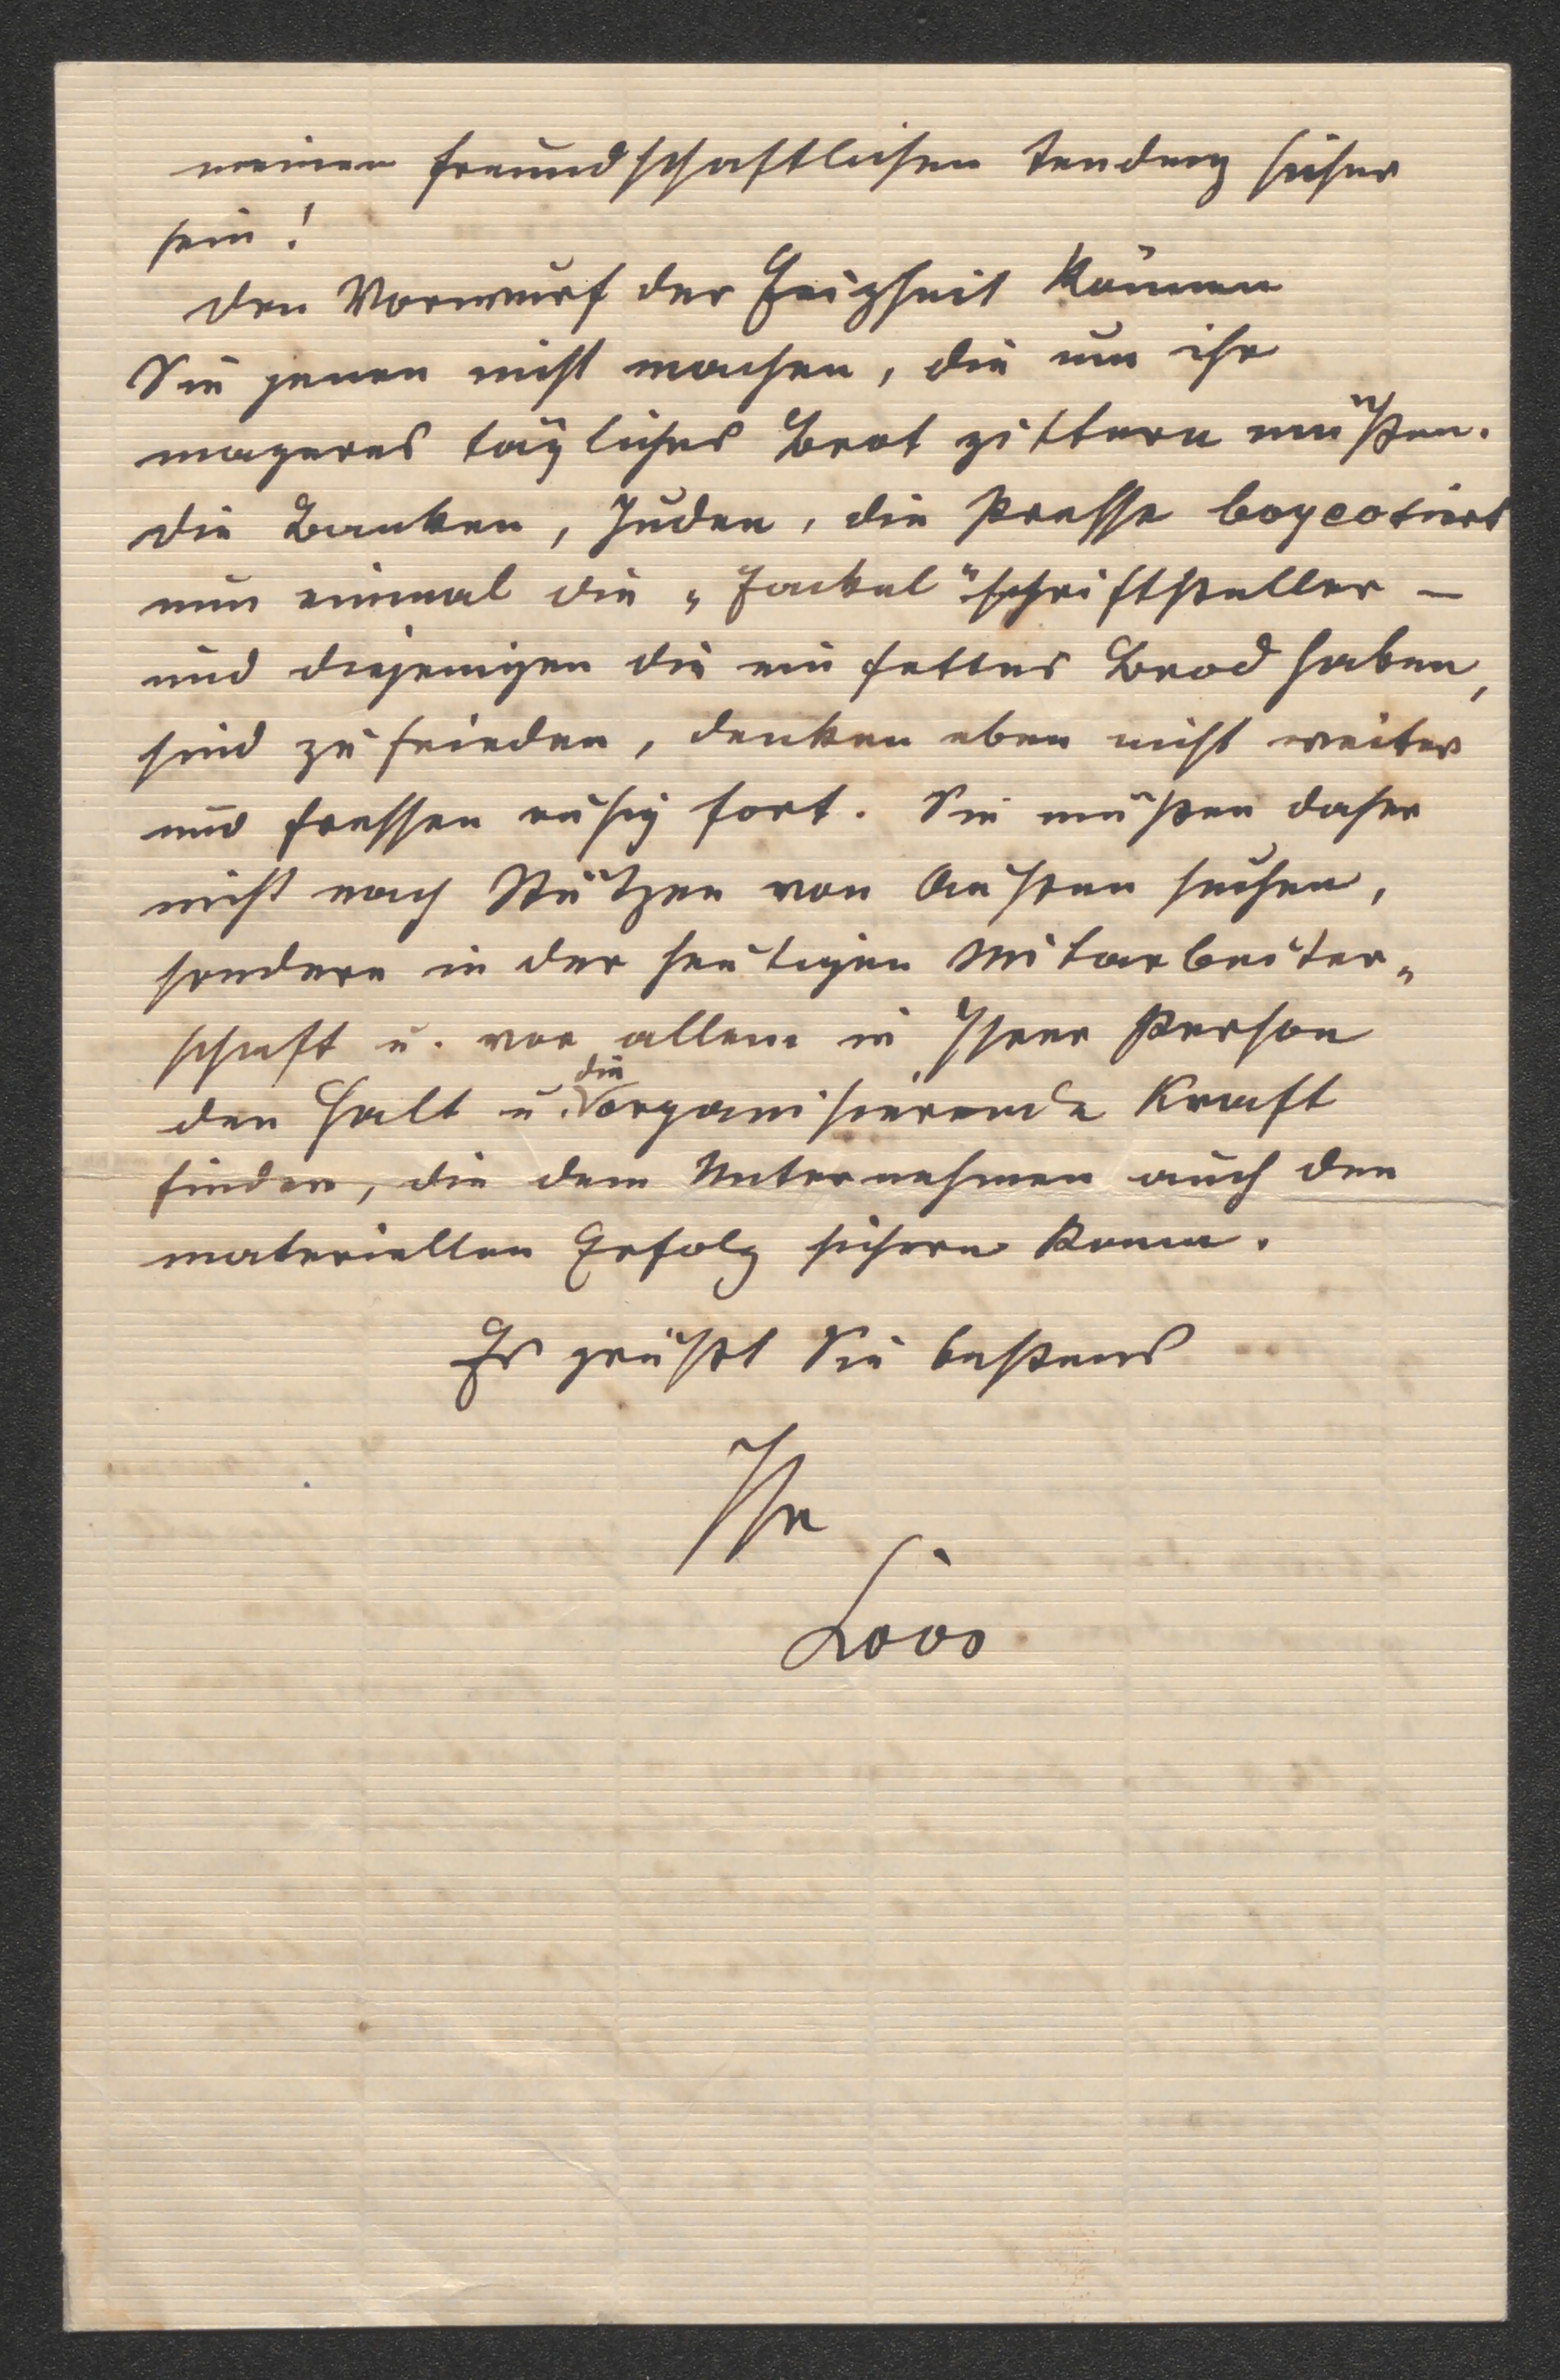 meiner freundschaftlichen Tendenz sicher
sein!
Den Vorwurf der Feigheit können
Sie jenen nicht machen, die um ihr
mageres tägliches Brot zittern müßen.
Die Banken, Juden, die Presse boycotiert
nun einmal die „Fackel“schriftsteller –
und diejenigen die ein fettes Brod haben,
sind zufrieden, denken eben nicht weiter
und fressen ruhig fort. Sie müßen daher
nicht nach Stützen von Außen suchen,
sondern in der heutigen Mitarbeiter„
schaft u. vor allem in Ihrer Person
den Halt u. die organisierende Kraft
finden, die dem Unternehmen auch den
materiellen Erfolg sichern kann.
Es grüßt Sie bestens
Ihr
Loos